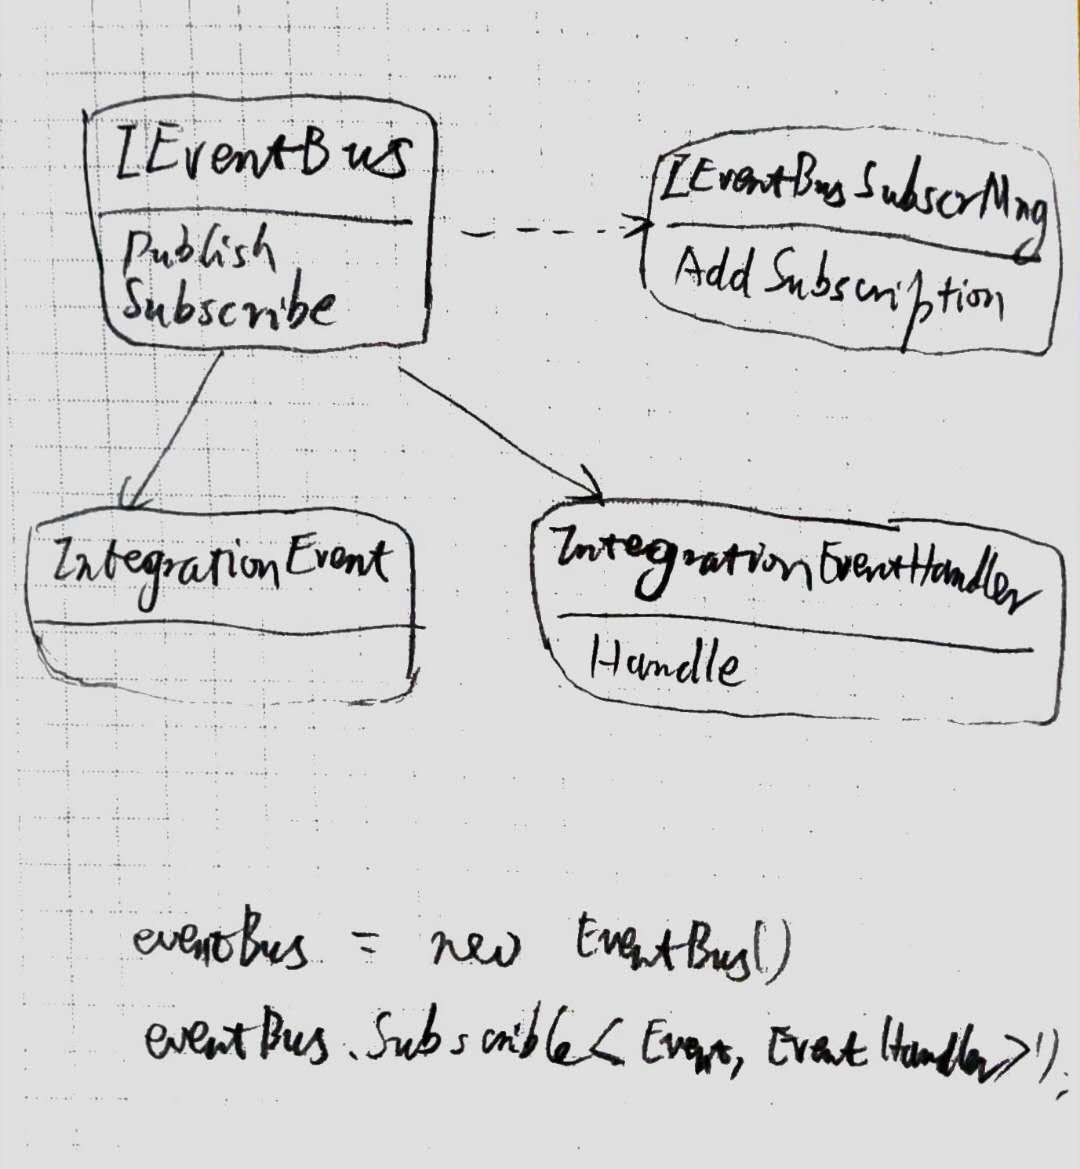 IEventBus
Publish
Subscribe
IEventBusSubscrMng
AddSubscription
IntegrationEvent
IntegrationEventHandler
Handle
eventBus = new EventBus()
eventBus.Subscrible<Event, EventHandler>');